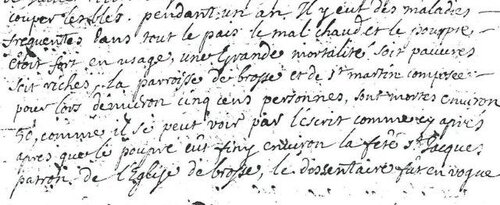 couper les bles. pendant un an Il y eut des maladies
frequentes dans tout le païs le mal chaud et le pourpre
etoit fort en usage, une grande mortalité soit pauvres
soit riches, la parroisse de brosse et de st martin composee
pour lors denviron cinq cens personnes, sont mortes environ
50, comme il se peut voir pas lescrit comme cy apres
apres que le poupre eut finy environ la fete st Jacques
patron de l'Eglise de brosse, le dossentaire fut en vogue